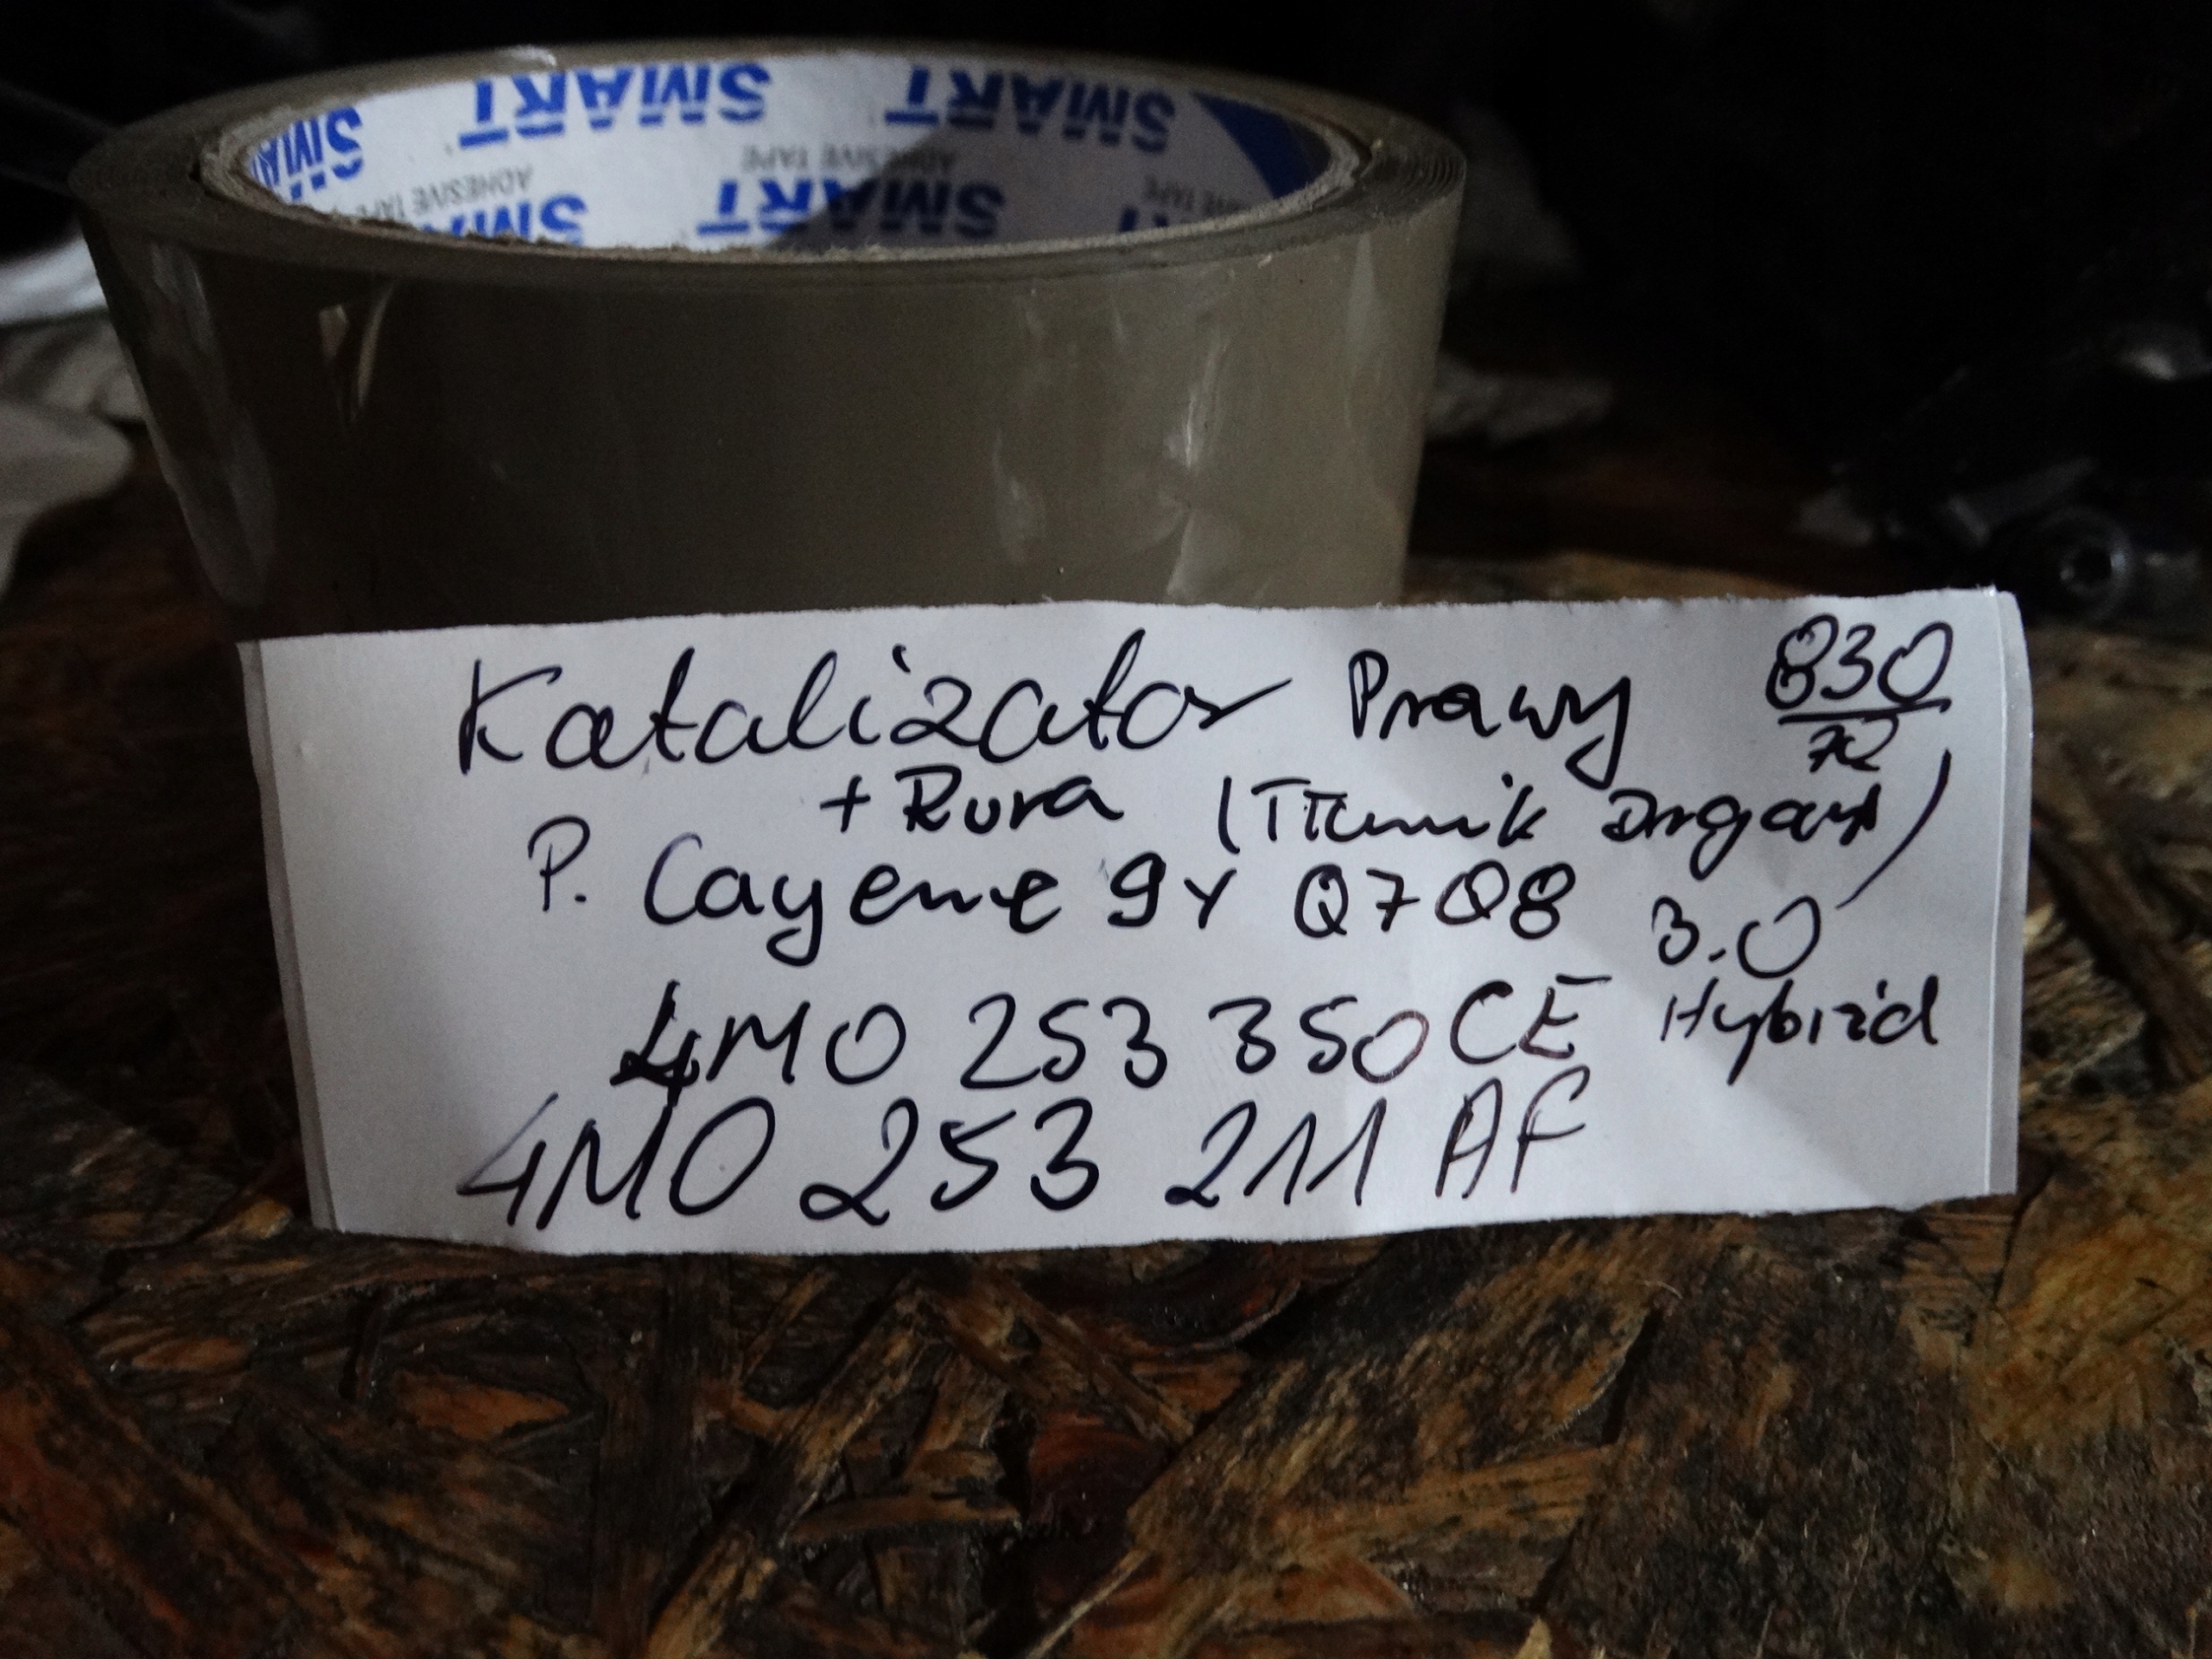 SMART SMART SMART
ADHESIVE TAPE ADHESIVE TAPE
SMART SMART
Katalizator Prawy 830
72
+ Rura (Tłumik Drgań)
P. Cayenne 9Y Q7 Q8 3.0
Hybrid
4M0 253 350 CE
4M0 253 211 AF